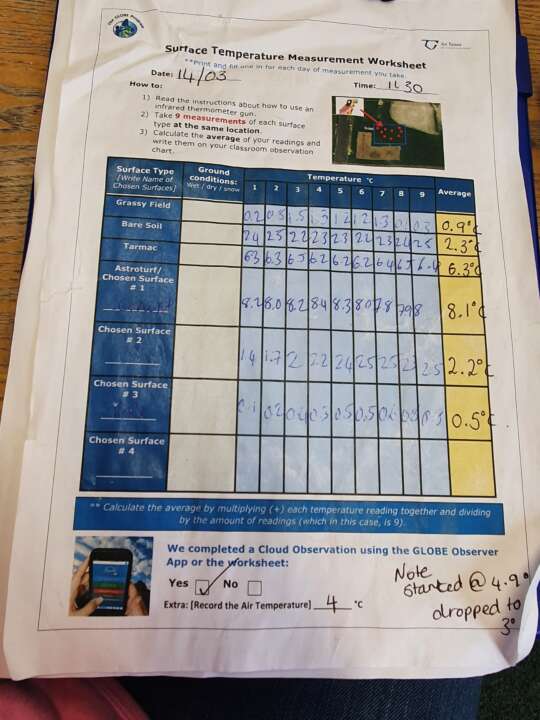 The GLOBE Program
Surface Temperature Measurement Worksheet
**Print and fill one in for each day of measurement you take.
Date: 14/03 Time: 11 30
How to:
1) Read the instructions about how to use an infrared thermometer gun.
2) Take 9 measurements of each surface type at the same location.
3) Calculate the average of your readings and write them on your classroom observation chart.
Surface Type [Write Name of Chosen Surfaces] Ground conditions: Wet / dry / snow Temperature °C Average
1 2 3 4 5 6 7 8 9
Grassy Field 0.2 0.5 1.5 1.3 1.2 1.2 1.3 0.9°C
Bare Soil 24 25 22 23 23 22 23 24 25 2.3°C
Tarmac 63 6.3 65 62 62 62 64 65 6.4 6.3°C
Astroturf/ Chosen Surface # 1 8.2 8.0 8.2 84 8.3 80 78 79 8 8.1°C
Chosen Surface # 2 14 1.7 2 22 24 25 25 2.5 2.2°C
Chosen Surface # 3 0.1 02 04 03 0.5 0.5 0.3 0.5°C
Chosen Surface # 4
** Calculate the average by multiplying (+) each temperature reading together and dividing
by the amount of readings (which in this case, is 9).
We completed a Cloud Observation using the GLOBE Observer
App or the worksheet:
Yes ✓ No
Extra: [Record the Air Temperature] 4 °C
Note
started @ 4.9°
dropped to
3°